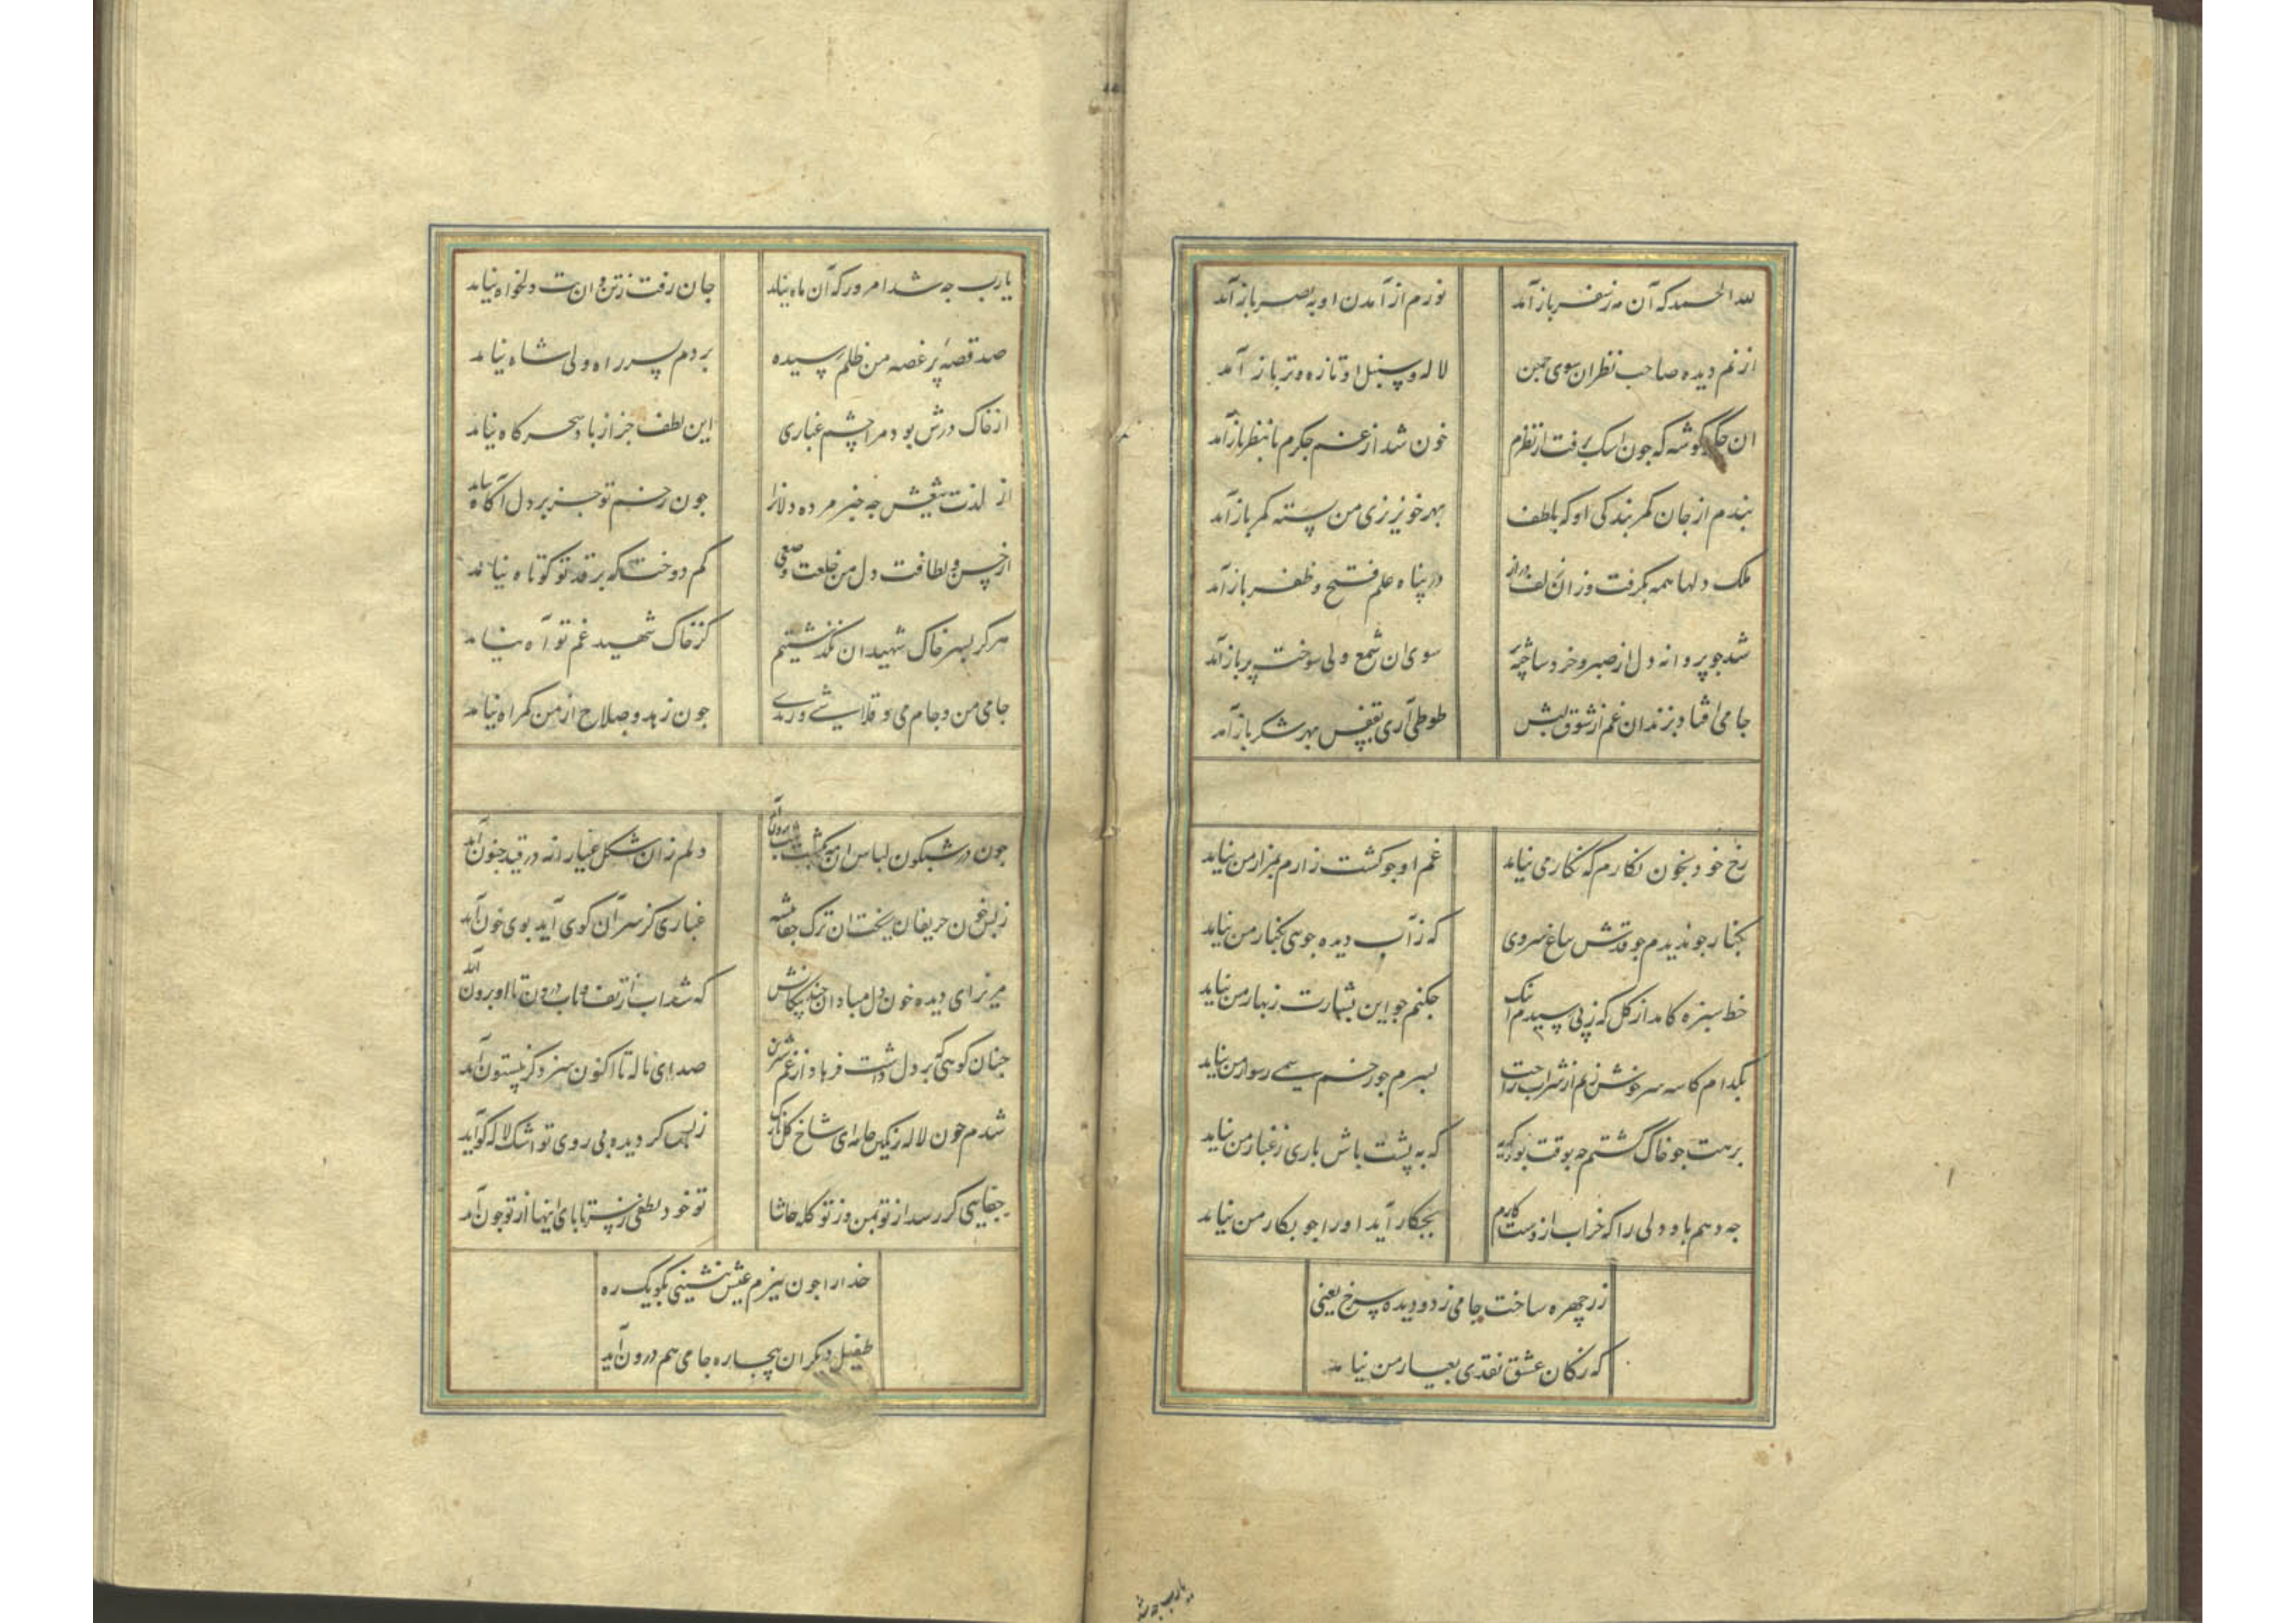 لله الحمد که آن مه ز سفر باز آمد نورم از آمدن او به بصر باز آمد
از نم دیده صاحب نظران سوی چمن لاله و سنبل او تازه و تر باز آمد
ان جگرگوشه که جون اشک برفت از نظرم خون شد از غم جکرم تا بنظر باز آمد
بندم از جان کمر بندکی او که بلطف بهر خونریزی من بسته کمر باز آمد
ملک دلها همه بکرفت وز ان زلف دراز در پناه علم فتح و ظفر باز آمد
شد جو پروانه دل از صبر و خرد ساخته پر سوی ان شمع ولی سوخته پر باز آمد
جامی افتاد بزندان غم از شوق لبش طوطی آری بقفس بهر شکر باز آمد
رخ خود بخون نکارم که نکار می نیاید غم او جو کشت زارم بمزار من نیاید
بکنار جو ندیدم جو قدش بباغ سروی که ز آب دیده جویی بکنار من نیاید
خط سبزه کامد از کل که ز پی رسیدم اینک جکنم جو این بشارت ز بهار من نیاید
بکدام کاسه سر خوش زیم از شراب راحت بسرم جو زخم سیمی ز سوار من نیاید
برهت جو خاک کشتم جه بوقت بود کریه که به پشت باش باری ز غبار من نیاید
جه دهم باو دلی را که خراب از وست کارم بجکار آید او را جو بکار من نیاید
زر چهره ساخت جامی ز دو دیده سرخ یعنی
که ز کان عشق نقدی بعیار من نیامد
یارب جه شد امروز که آن ماه نیامد جان رفت ز تن و ان بت دلخواه نیامد
صد قصه پر غصه من ظلم رسیده بردم بسر راه ولی شاه نیامد
از خاک درش بود مرا چشم غباری این لطف جز از باد سحرکاه نیامد
از لذت تیغش جه خبر مرده دلانرا جون زخم تو جز بر دل آکاه نیامد
از حسن و لطافت دل من خلعت وصفی کم دوخت که بر قد تو کوتاه نیامد
هرکز بسر خاک شهیدان نکذشتیم کز خاک شهید غم تو آه نیامد
جامی من و جام می و قلاشی و رندی جون زهد و صلاح از من کمراه نیامد
جون در شبکون لباس ان مه بکشت شب برون آمد دلم زان شکل عیارانه در قید جنون آمد
ز بس خون حریفان ریخت ان ترک جفا پیشه غباری کز سر آن کوی آید بوی خون آمد
مریز ای دیده خون دل مبادا ان جند پیکانش که شد آب از تف و تاب درون تا او برون آمد
جنان کوهی که بر دل داشت فرهاد از غم شیرین صدای ناله تا اکنون سزد کز بیستون آمد
شدم جون لاله رنکین جامه ای شاخ کل نازک ز بس کز دیده بی روی تو اشک لاله کون آمد
جفایی کر رسد از تو بمن وز تو کله حاشا تو خود لطفی ز سر تا پای اینها از تو جون آمد
خدا را جون ببزم عیش بنشینی بکو یک ره
طفیل دیکران بیچاره جامی هم درون آمد
یارب جه شد